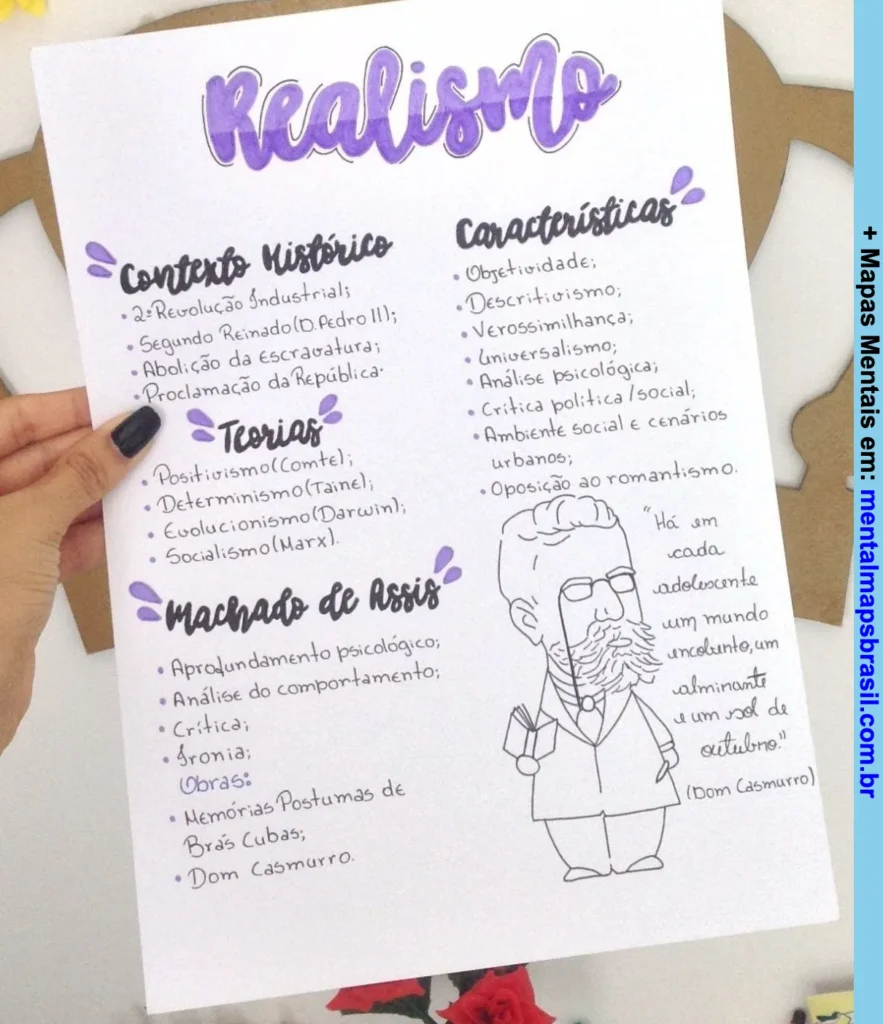 Realismo
Contexto Histórico
• 2ª Revolução Industrial;
• Segundo Reinado (D. Pedro II);
• Abolição da Escravatura;
• Proclamação da República.
Teorias
• Positivismo (Comte);
• Determinismo (Taine);
• Evolucionismo (Darwin);
• Socialismo (Marx).
Machado de Assis
• Aprofundamento psicológico;
• Análise do comportamento;
• Crítica;
• Ironia;
Obras:
• Memórias Postumas de
Brás Cubas;
• Dom Casmurro.
Características
• Objetividade;
• Descritivismo;
• Verossimilhança;
• Universalismo;
• Análise psicológica;
• Crítica política/social;
• Ambiente social e cenários
urbanos;
• Oposição ao romantismo.
"Há em
cada
adolescente
um mundo
encoberto, um
alminante
e um sol de
outubro."
(Dom Casmurro)
+ Mapas Mentais em: mentalmapsbrasil.com.br